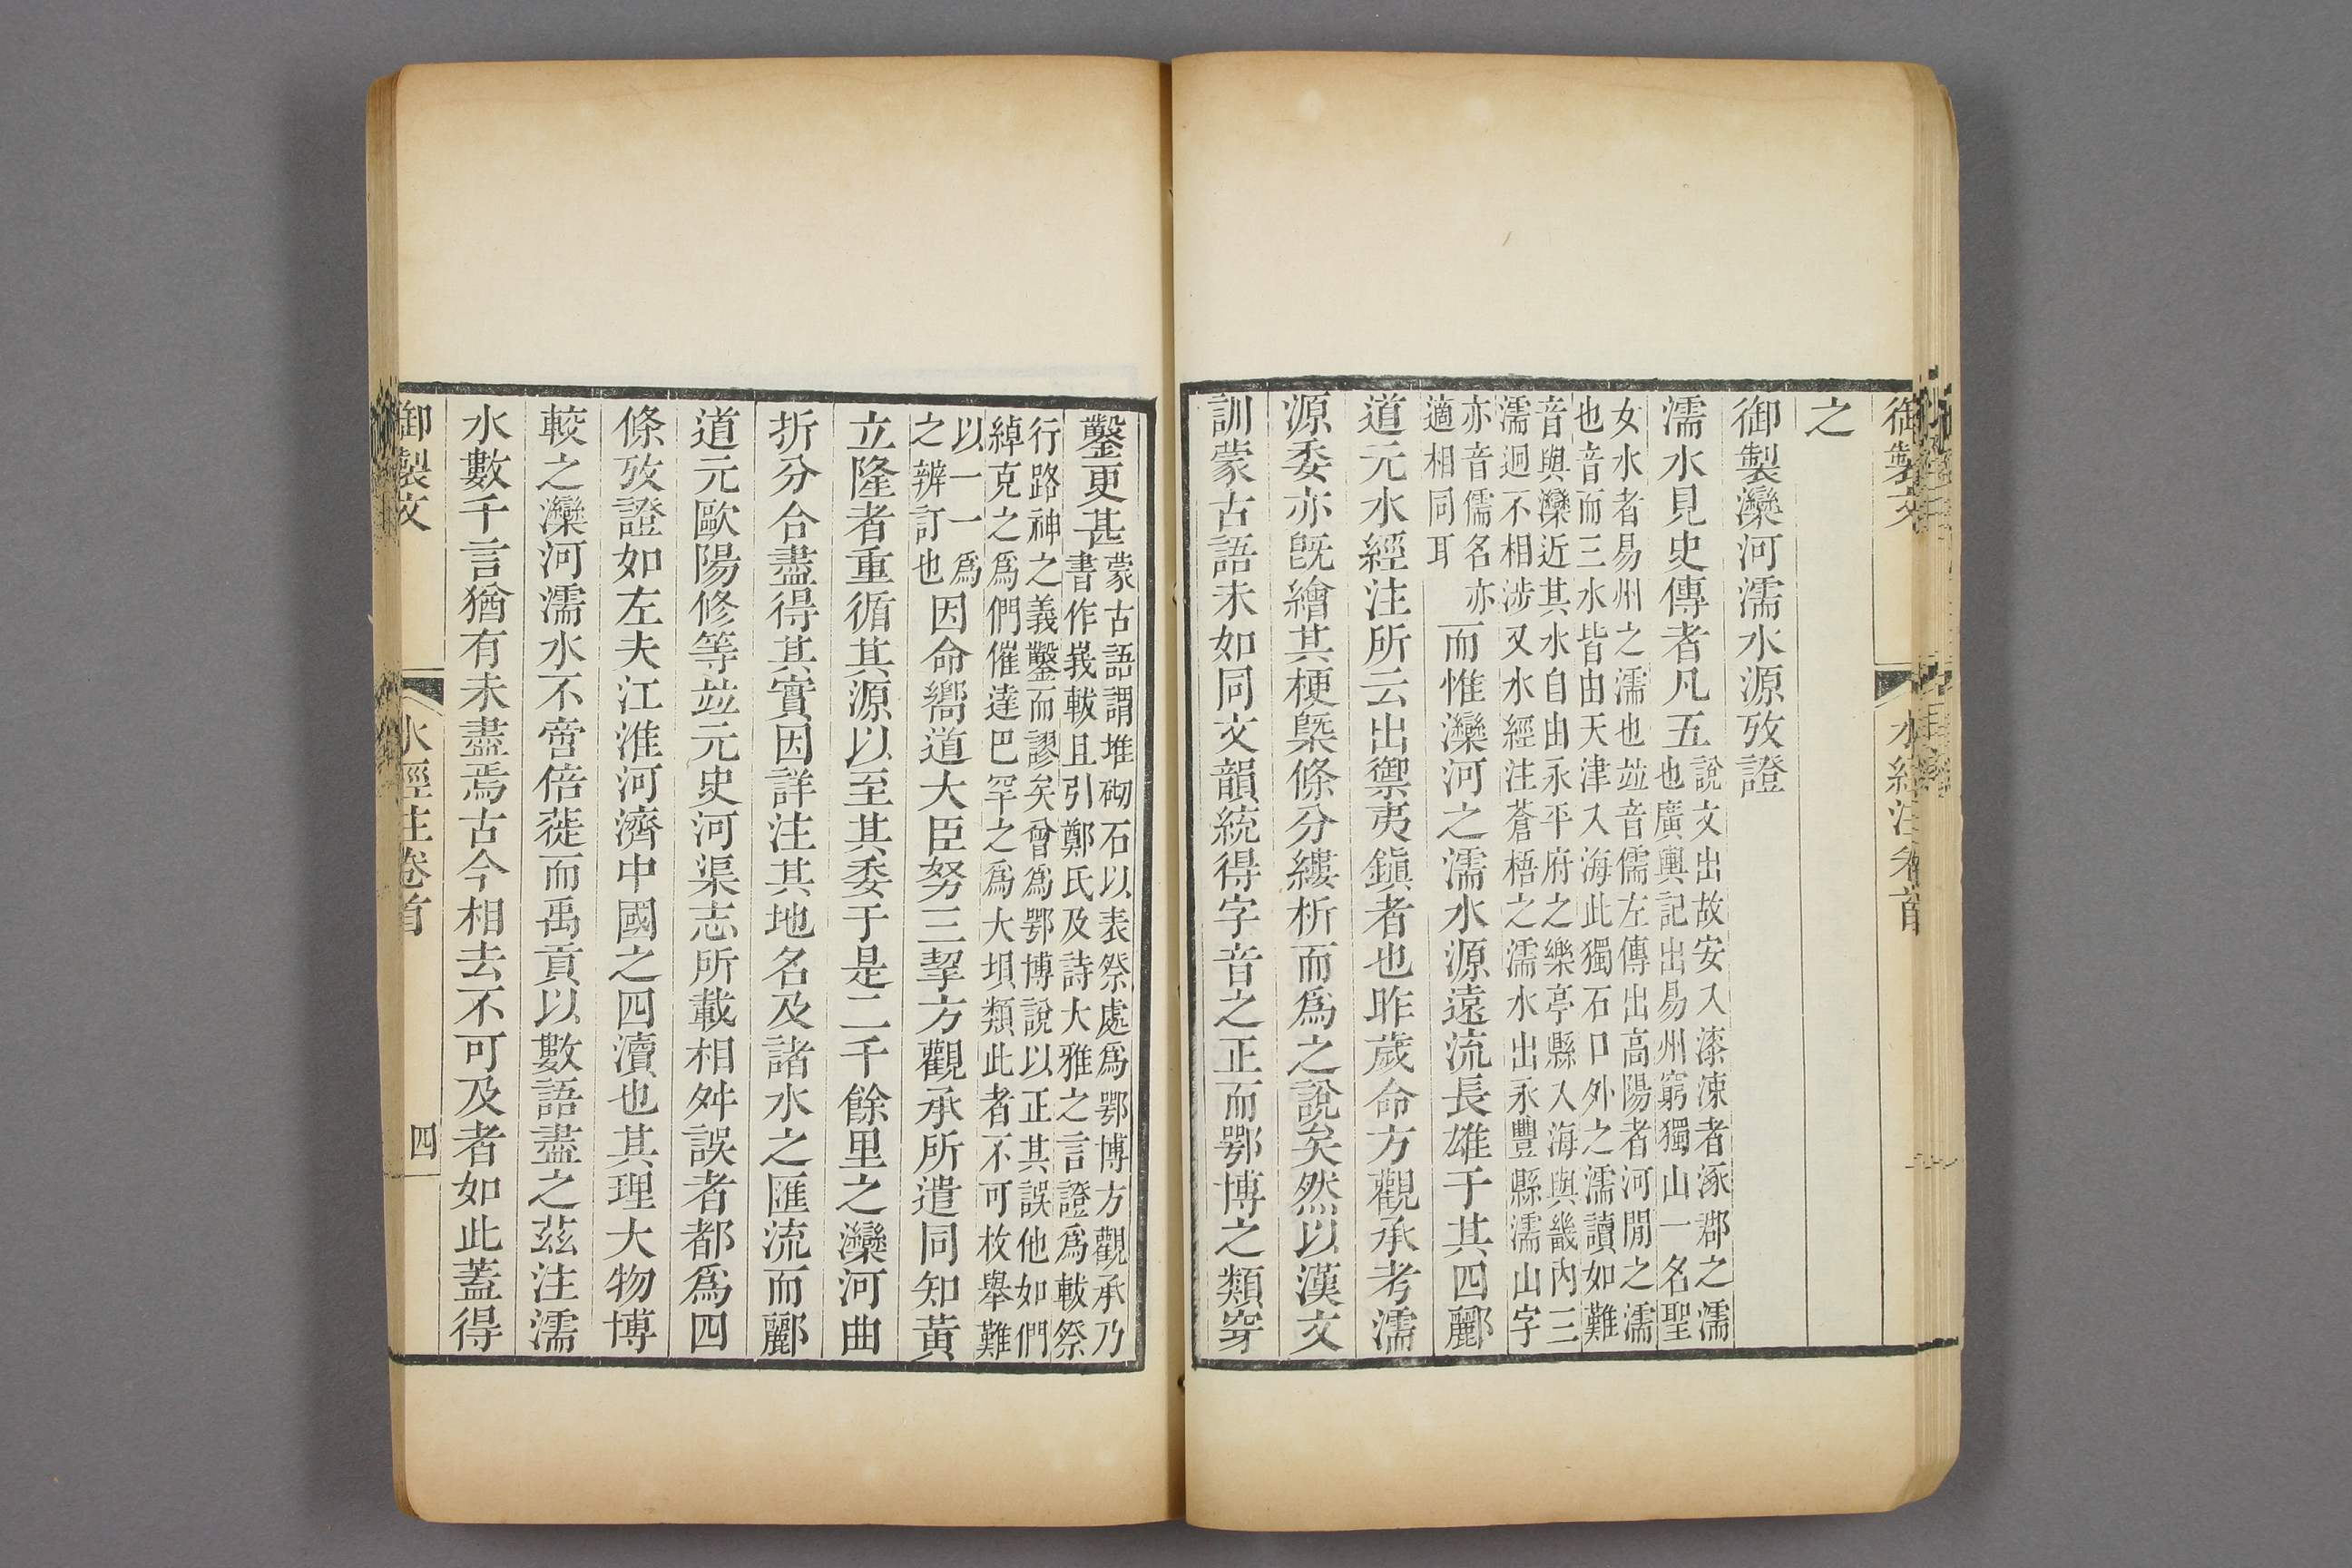 御製文
水經注卷首
之
御製灤河濡水源攷證
濡水見史傳者凡五說文出故安入漆涑者涿郡之濡
也廣輿記出易州窮獨山一名聖
女水者易州之濡也竝音儒左傳出高陽者河閒之濡
也音而三水皆由天津入海此獨石口外之濡讀如難
音與灤近其水自由永平府之樂亭縣入海與畿內三
濡迥不相涉又水經注蒼梧之濡水出永豐縣濡山字
亦音儒名亦
適相同耳
而惟灤河之濡水源遠流長雄于其四酈
道元水經注所云出禦夷鎮者也昨歲命方觀承考濡
源委亦旣繪其梗槩條分縷析而爲之說矣然以漢文
訓蒙古語未如同文韻統得字音之正而鄂博之類穿
鑿更甚蒙古語謂堆砌石以表祭處爲鄂博方觀承乃
書作峩軷且引鄭氏及詩大雅之言證爲軷祭
行路神之義鑿而謬矣曾爲鄂博說以正其誤他如們
綽克之爲們催達巴罕之爲大垻類此者不可枚舉難
以一一爲
之辨訂也
因命嚮道大臣努三挈方觀承所遣同知黃
立隆者重循其源以至其委于是二千餘里之灤河曲
折分合盡得其實因詳注其地名及諸水之匯流而酈
道元歐陽修等竝元史河渠志所載相舛誤者都爲四
條攷證如左夫江淮河濟中國之四瀆也其理大物博
較之灤河濡水不啻倍蓰而禹貢以數語盡之茲注濡
水數千言猶有未盡焉古今相去不可及者如此蓋得
御製文
水經注卷首
四